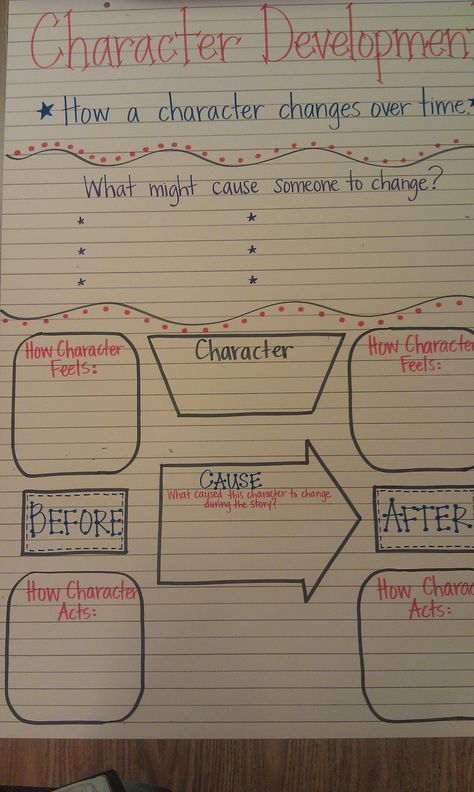 Character Developmen
★ How a character changes over time.★
What might cause someone to change?
* *
* *
* *
How Character
Feels:
Character
How Characte
Feels:
CAUSE
What caused this character to change
during the story?
BEFORE
AFTER
How Character
Acts:
How Charac
Acts: